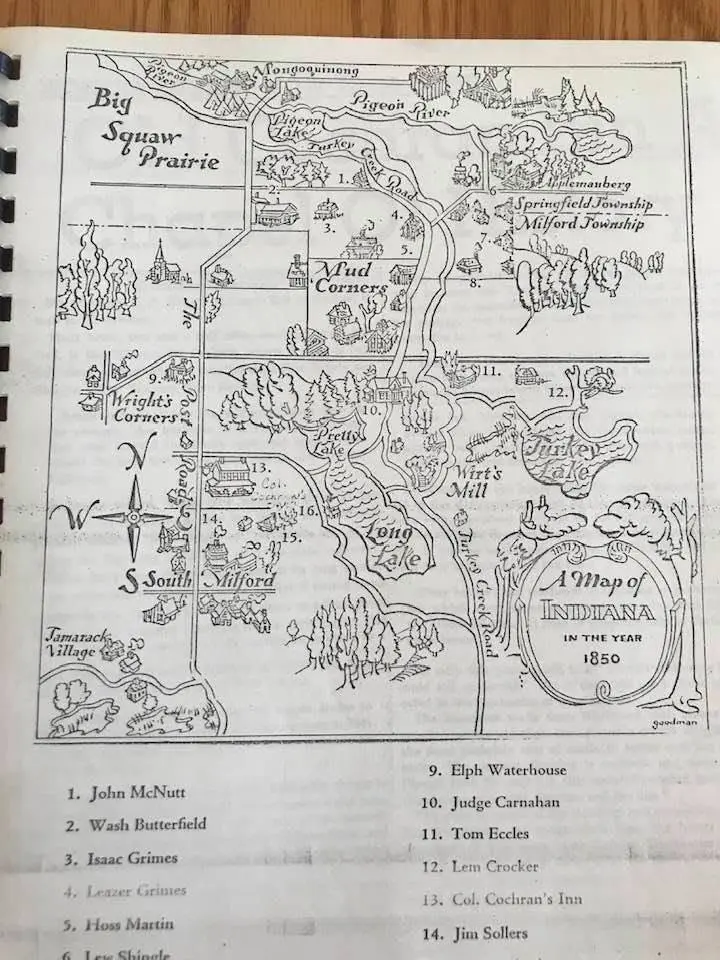 Pigeon
River
Mongoquinong
Big
Squaw
Prairie
Pigeon River
Pigeon
Lake
Turkey Creek Road
1.
2.
3.
4.
5.
6
7
8.
Applemanberg
Springfield Township
Milford Township
Mud
Corners
The Post Road
9.
Wright's
Corners
10.
11.
12.
Pretty
Lake
Turkey
Lake
Wirt's
Mill
N
W
S
13.
Col.
Cochran's
14.
15.
16.
Long
Lake
South Milford
Turkey Creek Road
Tamarack
Village
A Map of
INDIANA
IN THE YEAR
1850
goodman
1. John McNutt
2. Wash Butterfield
3. Isaac Grimes
4. Leazer Grimes
5. Hoss Martin
6. Lew Shingle
9. Elph Waterhouse
10. Judge Carnahan
11. Tom Eccles
12. Lem Crocker
13. Col. Cochran's Inn
14. Jim Sollers